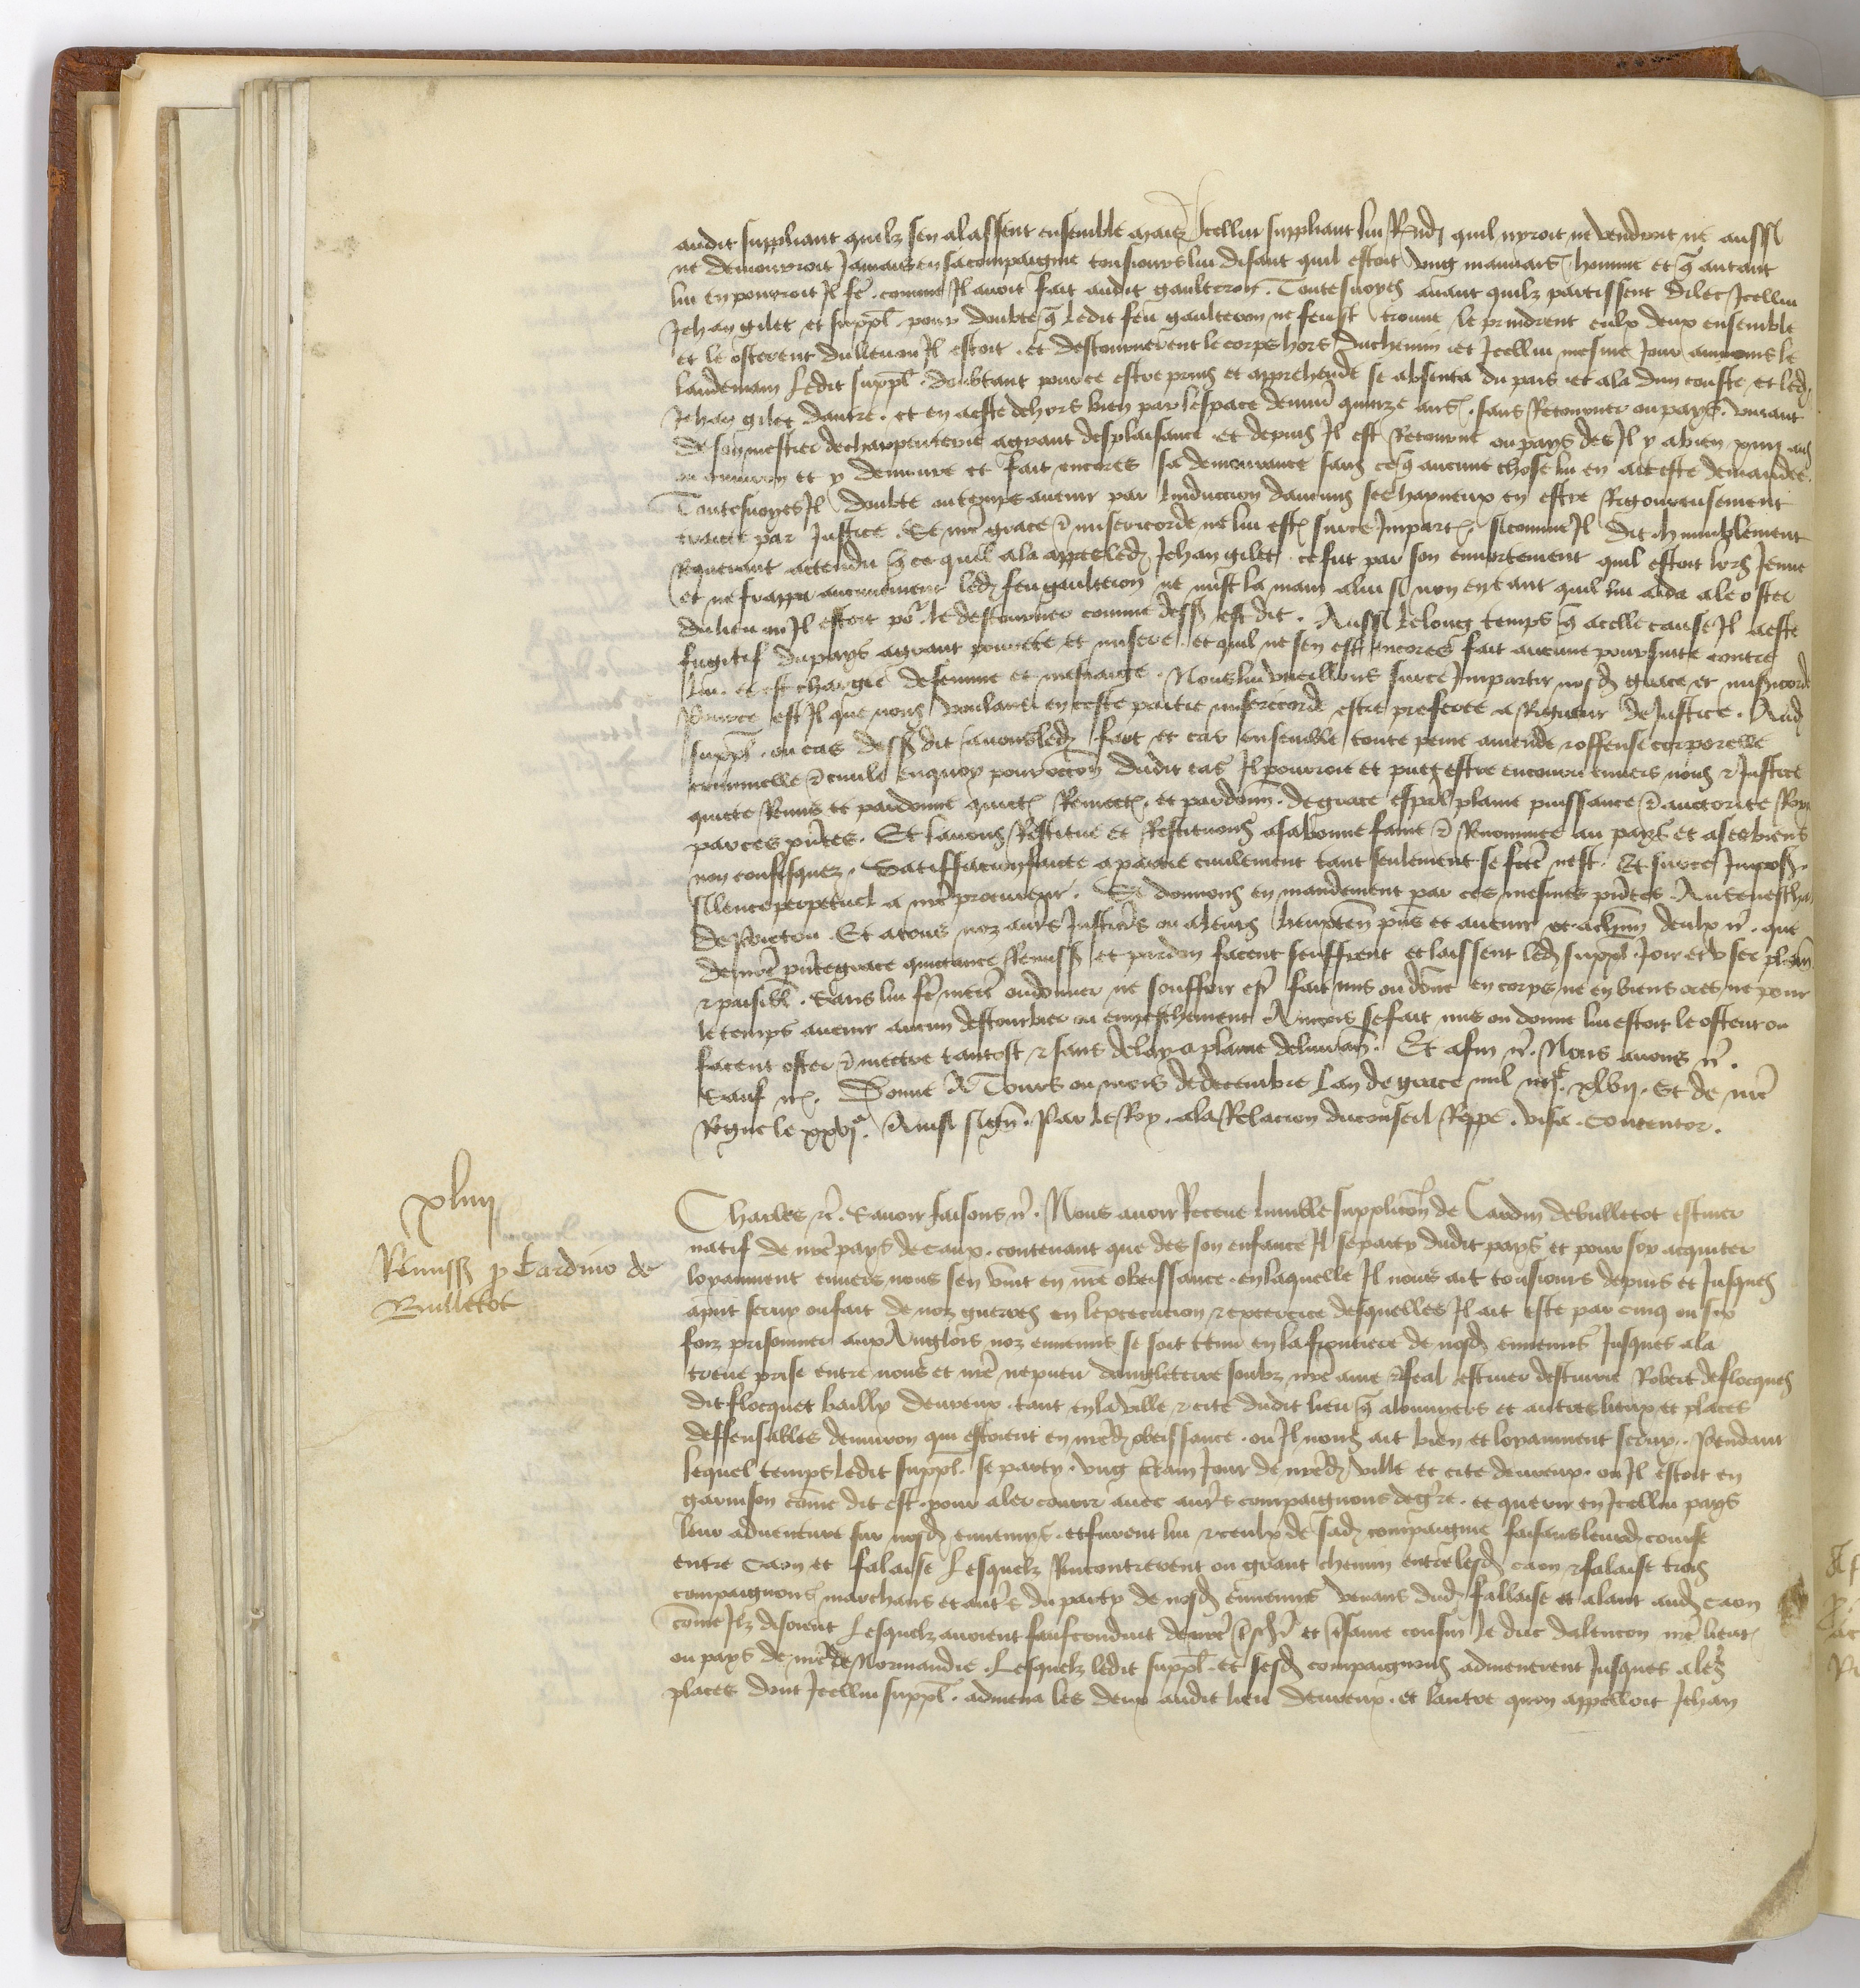 audit suppliant quilz sen alassent ensemble mais Icellui suppliant lui Rnd quil nyroit ne vendroit ne aussi
ne demourroit Jamais en sa compaignie tousiours lui disant quil estoit ung mauvais homme et q autant
lui en pourroit Il fe comme Il avoit fait audit gaulteron. Toutesvoyes avant quilz partissent dilec Icellui
Jehan gilet et suppl pour doubte q ledit feu gaulteron ne feust trouve le prindrent eulx deux ensemble
et le osterent du lieu ou Il estoit et destournerent le corps hors du chemin et Icellui mesme Jour au moins le
landemain Ledit suppl doubtant pource estre prins et apprehende se absenta du pais et ala dun couste et led
Jehan gilet dautre. et en a este dehors bien par lespace denviron quinze ans sans Retourner ou pays vivant
de son mestier de charpenterie a grant desplaisance et depuis Il est Retourne ou pays des Il y a bien xiiij ans
ou environ et y demeure et fait encores sa demourance sans ce q aucune chose lui en ait este demandee.
Toutesvoyes Il doubte ou temps avenir par linduccion daucuns ses hayneux en estre Rigoureusement
traicte par Justice Se nre grace & misericorde ne lui est sur ce Impart sicomme Il dit humblement
Requerant attendu q ce quil ala apres led Jehan gilet ce fut par son enhortement quil estoit lors Jeune
et ne frappa aucunement led feu gaulteron ne mist la main a lui si non en tant quil lui aida a le oster
du lieu ou Il estoit po le destourner comme dess est dit. Aussi le long temps q a celle cause Il a este
fugitif du pays a grant povrete et misere et quil ne sen est encores fait aucune poursuite contre
lui et est chargie de femme et mesnaige. Nous lui vueillons sur ce Impartir nosd grace et misericorde
Pource est Il que nous voulans en ceste partie misericorde estre preferee a Rigueur de Justice. Aud
suppl ou cas dess dit avons led fait et cas ensemble toute peine amende & offense corporelle
criminelle & civile enquoy pour occon dudit cas Il pourroit et puet estre encouru envers nous & Justice
quicte Remis et pardonne quict Remect et pardonn de grace espal plaine puissance & auctorite Royal
par ces pntes. Et lavons Restitue et Restituons a sa bonne fame & Renommee au pays et a ses biens
non confisquez. Satisfacion faicte a partie civilement tant seulement se fcte nest. Et sur ce Impos
silence perpetuel a nre procureur. Si donnons en mandement par ces mesmes pntes. Au seneschal
de Poictou. Et a tous noz autrs Justicirs ou a leurs lieuxten pns et avenir et achun deulx rc. que
de nre pnte grace quictance Remiss et pardon facent seuffrent et laissent led suppl Joir et user plain
& paisibl. Sans lui fe mectre ou donner ne souffrir estr fait mis ou donne en corps ne en biens ores ne pour
le temps avenir aucun destourbier ou empeschement Aincois se fait mis ou donne lui estoit le ostent ou
facent oster & mectre tantost & sans delay a plaine delivran. Et afin rc. Nous avons rc.
Sauf rc. Donne A Tours ou mois de decembre Lan de grace mil iiijc xlvij. Et de nre
Regne le xxvj. Ainsi sign. Par le Roy. a la Relacion du conseil Reppe. visa. Contentor.
xliiij
Remiss p Cardino de
Bulletot
Charles rc. Savoir faisons rc. Nous avoir Receue lumble supplicon de Cardin de bulletot escuier
natif de nre pays de caux. contenant que des son enfance Il se party dudit pays et pour soy acquiter
loyaument envers nous sen vint en nre obeissance. en laquelle Il nous ait tousiours depuis et Jusques
apnt servy ou fait de noz guerres en lexecucion & exercice desquelles Il ait este par cinq ou six
foiz prisonnier aux Anglois noz ennemis se soit tenu en la frontiere de nosd ennemis Jusques a la
treve prise entre nous et nre nepveu dangleterre soubz nre ame & feal escuier descuirie Robert de flocques
dit flocquet bailly devreux. tant en la ville & cite dudit lieu q a louviers et autres lieux et places
deffensables denviron qui estoient en nred obeissance. ou Il nous ait bien et loyaument servy. Pendant
lequel temps ledit suppl. se party ung ctain Jour de nred ville et cite devreux. ou Il estoit en
garnison come dit est. pour aler courir avec autrs compaignons de gre. et querir en Icellui pays
leur adventure sur nosd ennemys. et furent lui & ceulx de sad compaignie faisans leurd course
entre Caen et falaise Lesquelz Rencontrerent ou grant chemin entre lesd caen & falaise trois
compaignons marchans et autrs du party de nosd ennemis venans dud fallaise et alant aud Caen
come Ilz disoient Lesquelz avoient saufconduit de nre tsch et tsame cousin le duc dalencon nre lieut
ou pays de nre de Normandie. Lesquelz ledit suppl. et sesd compaignons admenerent Jusques a les
places dont Icellui suppl. admena les deux audit lieu devreux. et lautre quon appelloit Jehan